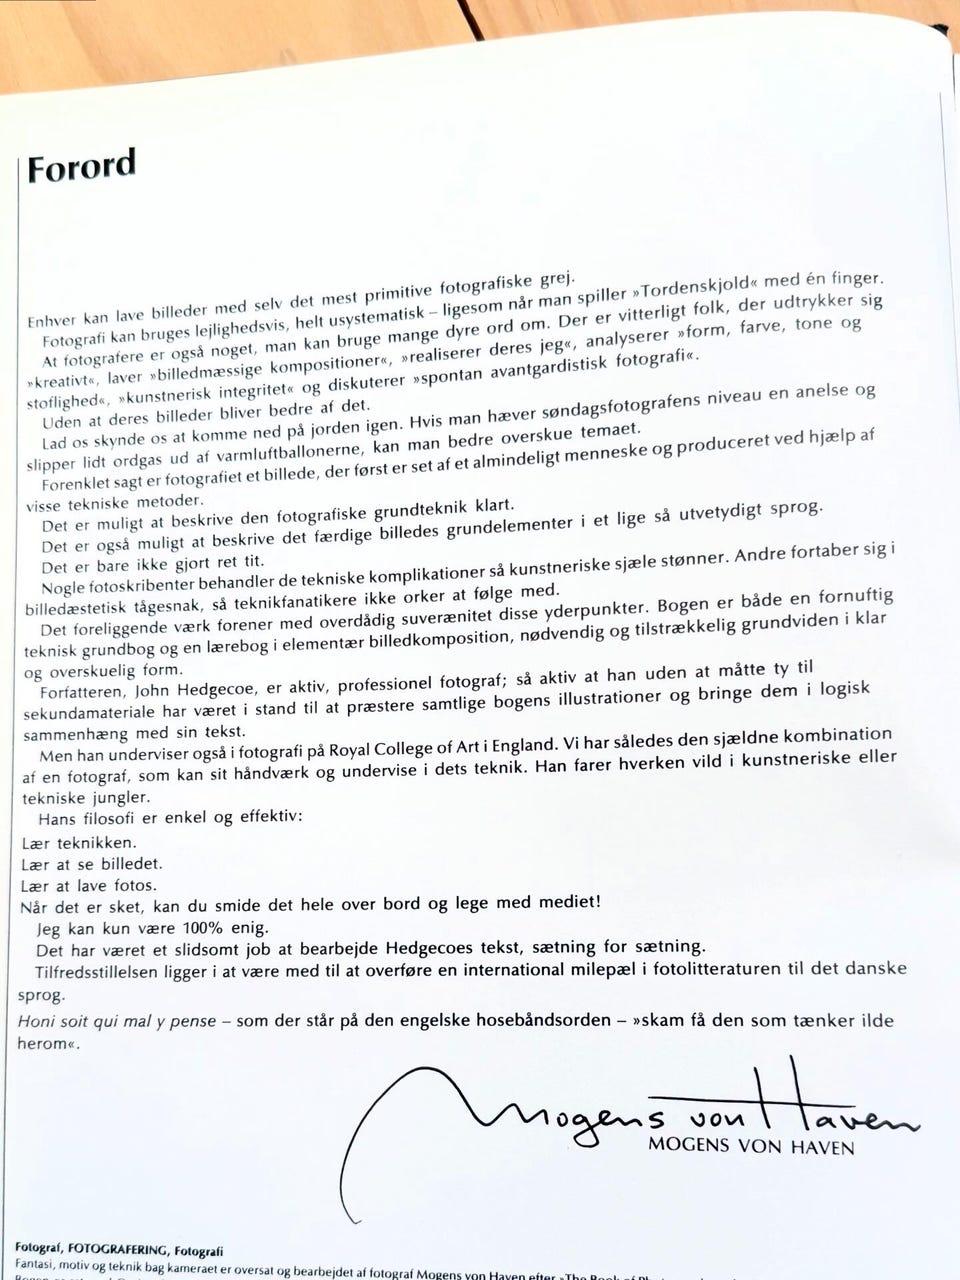 Forord
Enhver kan lave billeder med selv det mest primitive fotografiske grej.
Fotografi kan bruges lejlighedsvis, helt usystematisk – ligesom når man spiller »Tordenskjold« med én finger.
At fotografere er også noget, man kan bruge mange dyre ord om. Der er vitterligt folk, der udtrykker sig
»kreativt«, laver »billedmæssige kompositioner«, »realiserer deres jeg«, analyserer »form, farve, tone og
stoflighed«, »kunstnerisk integritet« og diskuterer »spontan avantgardistisk fotografi«.
Uden at deres billeder bliver bedre af det.
Lad os skynde os at komme ned på jorden igen. Hvis man hæver søndagsfotografens niveau en anelse og
slipper lidt ordgas ud af varmluftballonerne, kan man bedre overskue temaet.
Forenklet sagt er fotografiet et billede, der først er set af et almindeligt menneske og produceret ved hjælp af
visse tekniske metoder.
Det er muligt at beskrive den fotografiske grundteknik klart.
Det er også muligt at beskrive det færdige billedes grundelementer i et lige så utvetydigt sprog.
Det er bare ikke gjort ret tit.
Nogle fotoskribenter behandler de tekniske komplikationer så kunstneriske sjæle stønner. Andre fortaber sig i
billedæstetisk tågesnak, så teknikfanatikere ikke orker at følge med.
Det foreliggende værk forener med overdådig suverænitet disse yderpunkter. Bogen er både en fornuftig
teknisk grundbog og en lærebog i elementær billedkomposition, nødvendig og tilstrækkelig grundviden i klar
og overskuelig form.
Forfatteren, John Hedgecoe, er aktiv, professionel fotograf; så aktiv at han uden at måtte ty til
sekundamateriale har været i stand til at præstere samtlige bogens illustrationer og bringe dem i logisk
sammenhæng med sin tekst.
Men han underviser også i fotografi på Royal College of Art i England. Vi har således den sjældne kombination
af en fotograf, som kan sit håndværk og undervise i dets teknik. Han farer hverken vild i kunstneriske eller
tekniske jungler.
Hans filosofi er enkel og effektiv:
Lær teknikken.
Lær at se billedet.
Lær at lave fotos.
Når det er sket, kan du smide det hele over bord og lege med mediet!
Jeg kan kun være 100% enig.
Det har været et slidsomt job at bearbejde Hedgecoes tekst, sætning for sætning.
Tilfredsstillelsen ligger i at være med til at overføre en international milepæl i fotolitteraturen til det danske
sprog.
Honi soit qui mal y pense – som der står på den engelske hosebåndsorden – »skam få den som tænker ilde
herom«.
Mogens von Haven
MOGENS VON HAVEN
Fotograf, FOTOGRAFERING, Fotografi
Fantasi, motiv og teknik bag kameraet er oversat og bearbejdet af fotograf Mogens von Haven efter »The Book of